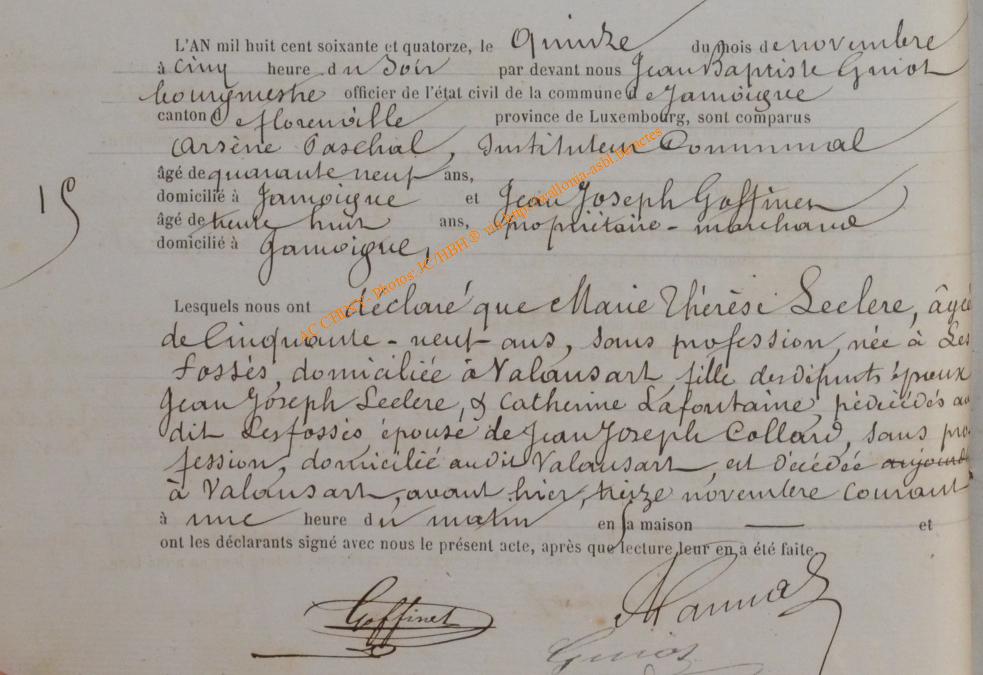 L'AN mil huit cent soixante et quatorze, le Quinze du mois de novembre
à cinq heure du Soir par devant nous Jean Baptiste Guiot
bourgmestre officier de l'état civil de la commune de Jamoigne
canton de florenville province de Luxembourg, sont comparus
Arsène Paschal, Instituteur Communal
âgé de quarante neuf ans,
domicilié à Jamoigne et Jean Joseph Goffinet
15
âgé de trente huit ans, propriétaire - marchand
domicilié à Jamoigne,
Lesquels nous ont déclaré que Marie Thérèse Leclere, âgée
de Cinquante-neuf ans, sans profession, née à Les
fossés, domiciliée à Valansart, fille des défunts époux
Jean Joseph Leclere, & Catherine Lafontaine, pédécédés au
dit Lesfossés épouse de Jean Joseph Collard, sans pro
fession, domicilié audit Valansart, est décédée
à Valansart, avant hier, treize novembre courant
à une heure du matin en sa maison et
ont les déclarants signé avec nous le présent acte, après que lecture leur en a été faite
Goffinet
Guiot
AC CHINY - Photos: JC/HBH ®